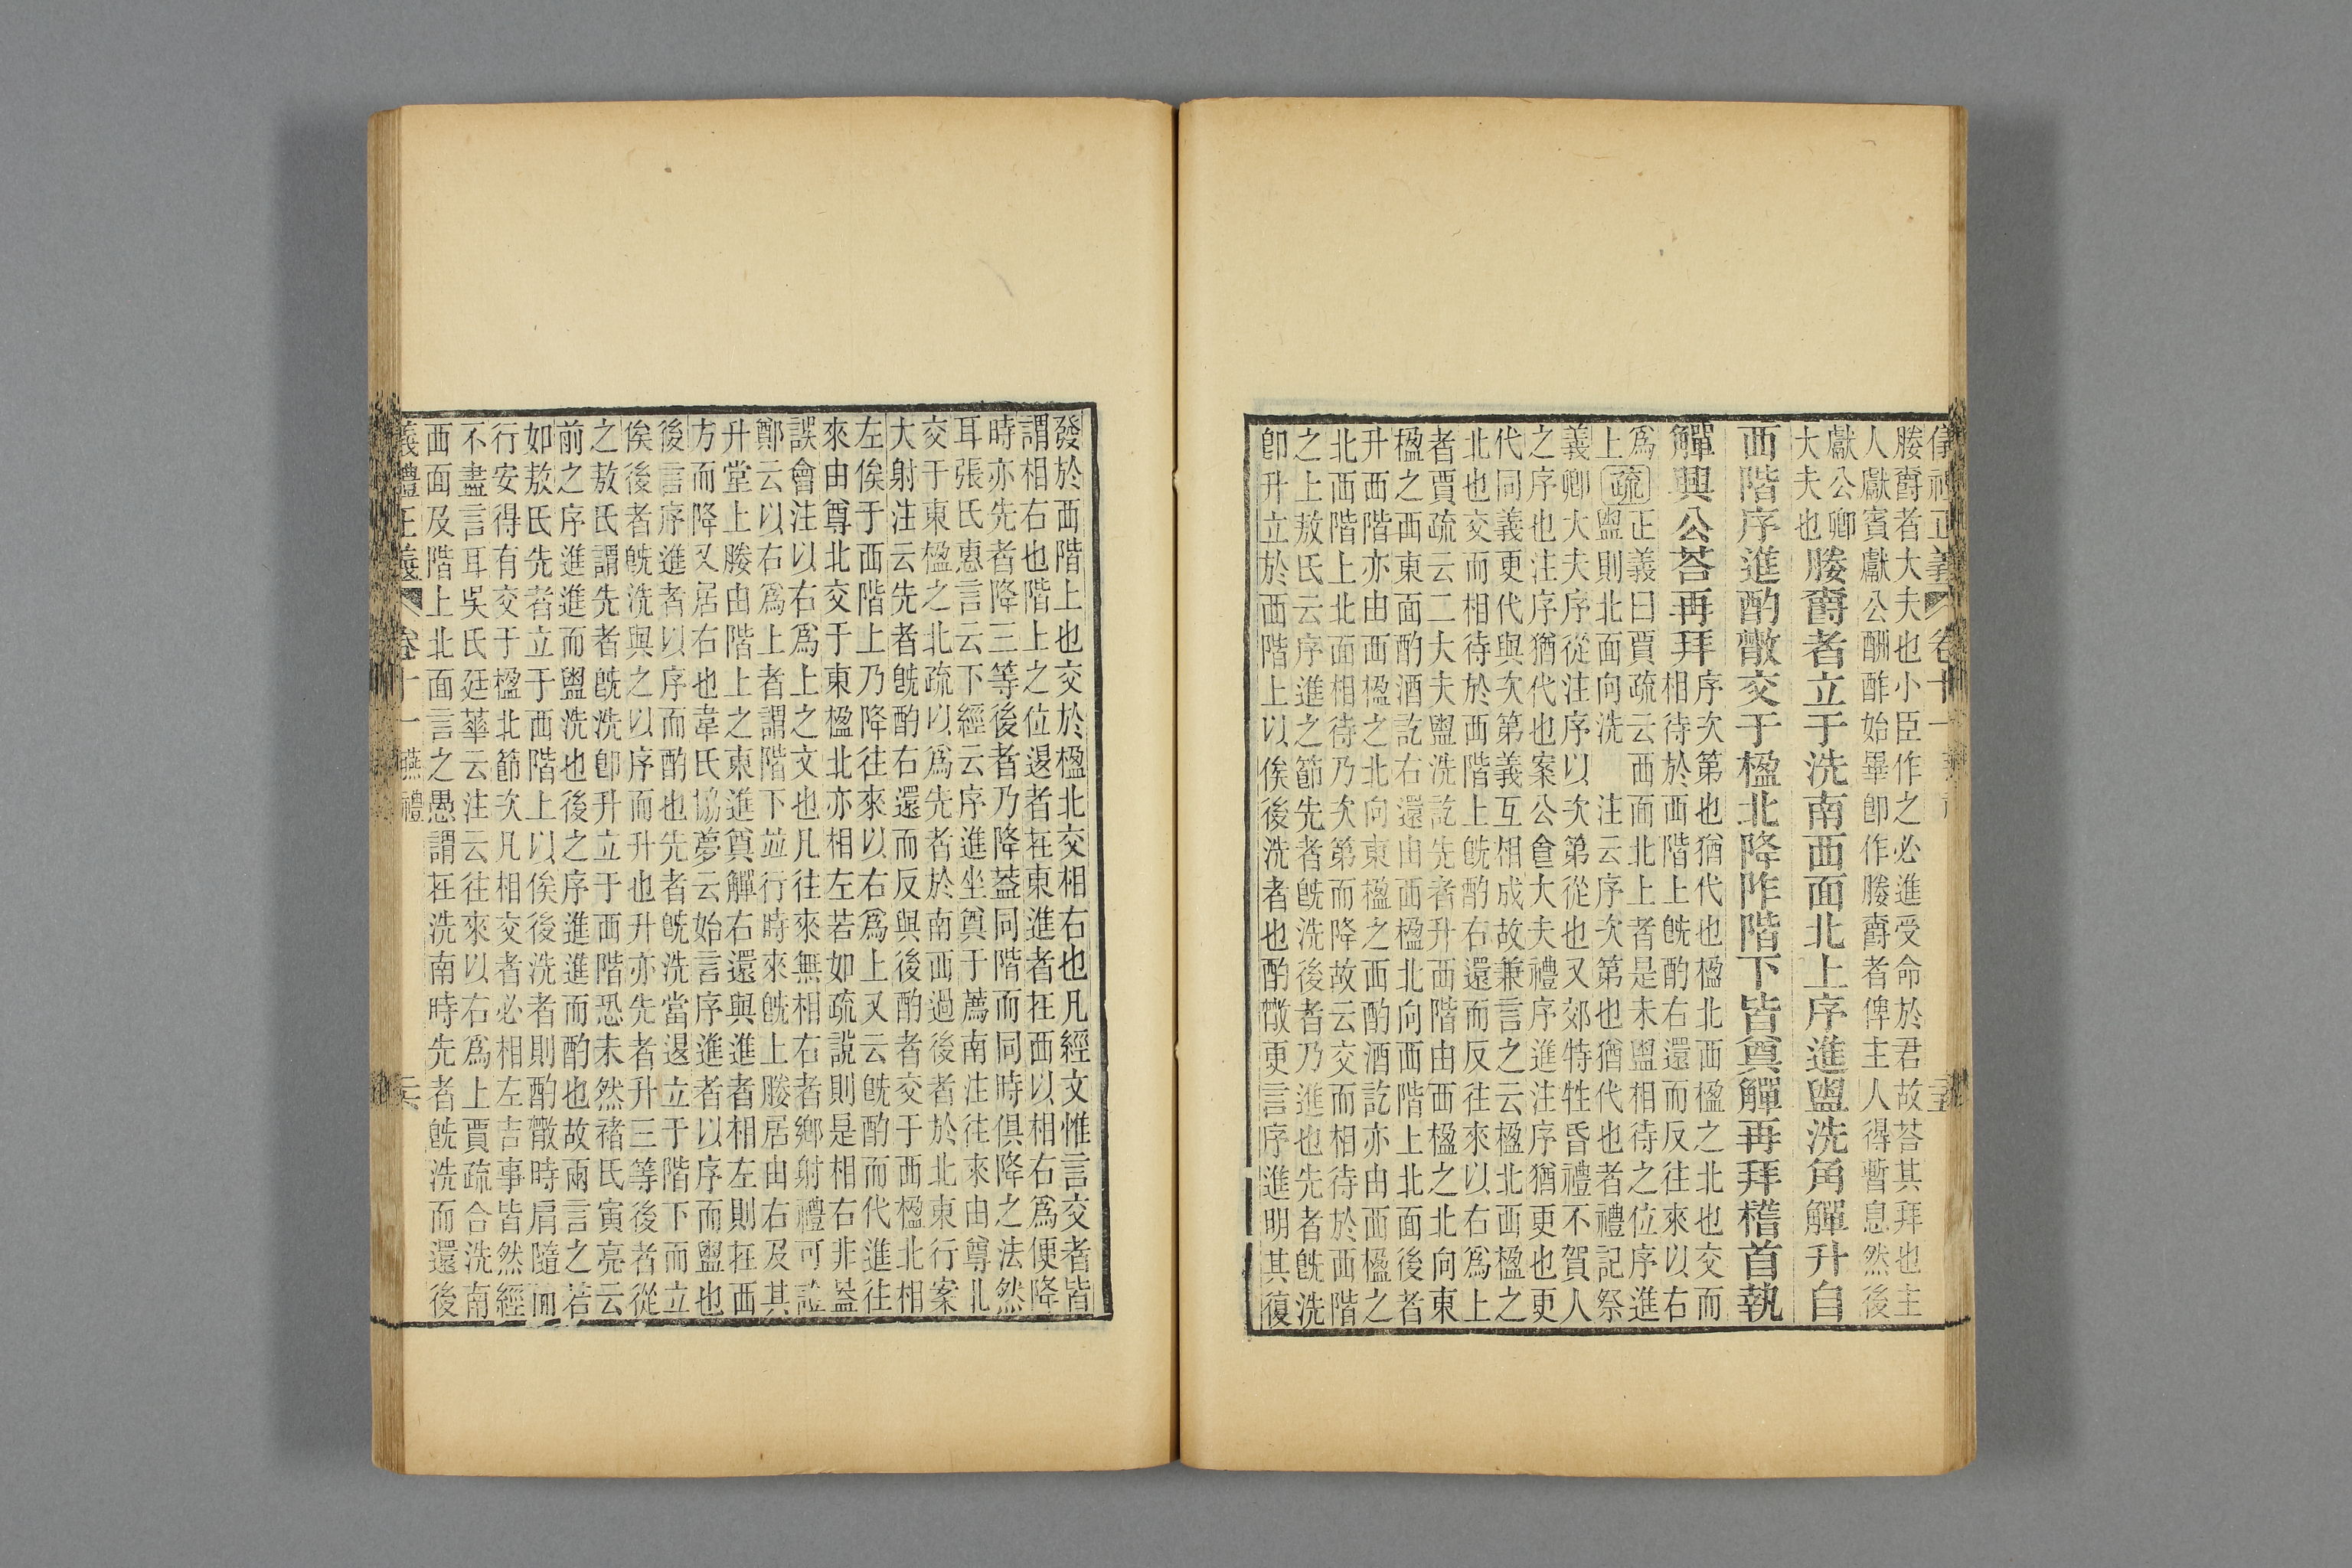 媵爵者大夫也小臣作之必進受命於君故荅其拜也主
人獻賓獻公酬酢始畢卽作媵爵者俾主人得暫息然後
獻公卿
大夫也
媵爵者立于洗南西面北上序進盥洗角觶升自
西階序進酌散交于楹北降阼階下皆奠觶再拜稽首執
觶興公荅再拜
序次第也猶代也楹北西楹之北也交而
相待於西階上旣酌右還而反往來以右
爲
上
疏
正義曰賈疏云西面北上者是未盥相待之位序進
盥則北面向洗　注云序次第也猶代也者禮記祭
義卿大夫序從注序以次第從也又郊特牲昏禮不賀人
之序也注序猶代也案公食大夫禮序進注序猶更也更
代同義更代與次第義互相成故兼言之云楹北西楹之
北也交而相待於西階上旣酌右還而反往來以右爲上
者賈疏云二大夫盥洗訖先者升西階由西楹之北向東
楹之西東面酌酒訖右還由西楹北向西階上北面後者
升西階亦由西楹之北向東楹之西酌酒訖亦由西楹之
北西階上北面相待乃次第而降故云交而相待於西階
之上敖氏云序進之節先者旣洗後者乃進也先者旣洗
卽升立於西階上以俟後洗者也酌散更言序進明其復
發於西階上也交於楹北交相右也凡經文惟言交者皆
謂相右也階上之位退者在東進者在西以相右爲便降
時亦先者降三等後者乃降葢同階而同時俱降之法然
耳張氏惠言云下經云序進坐奠于薦南注往來由尊北
交于東楹之北疏以爲先者於南西過後者於北東行案
大射注云先者旣酌右還而反與後酌者交于西楹北相
左俟于西階上乃降往來以右爲上又云旣酌而代進往
來由尊北交于東楹北亦相左若如疏說則是相右非葢
誤會注以右爲上之文也凡往來無相右者鄉射禮可證
鄭云以右爲上者謂階下竝行時來旣上媵居由右及其
升堂上媵由階上之東進奠觶右還與進者相左則在西
方而降又居右也韋氏協夢云始言序進者以序而盥也
後言序進者以序而酌也先者旣洗當退立于階下而立
俟後者旣洗與之以序而升也升亦先者升三等後者從
之敖氏謂先者旣洗卽升立于西階恐未然褚氏寅亮云
前之序進進而盥洗也後之序進進而酌也故兩言之若
如敖氏先者立于西階上以俟後洗者則酌散時肩隨而
行安得有交于楹北節次凡相交者必相左吉事皆然經
不盡言耳吳氏廷華云注云往來以右爲上賈疏合洗南
西面及階上北面言之愚謂在洗南時先者旣洗而還後
義禮正義　卷十一　燕禮